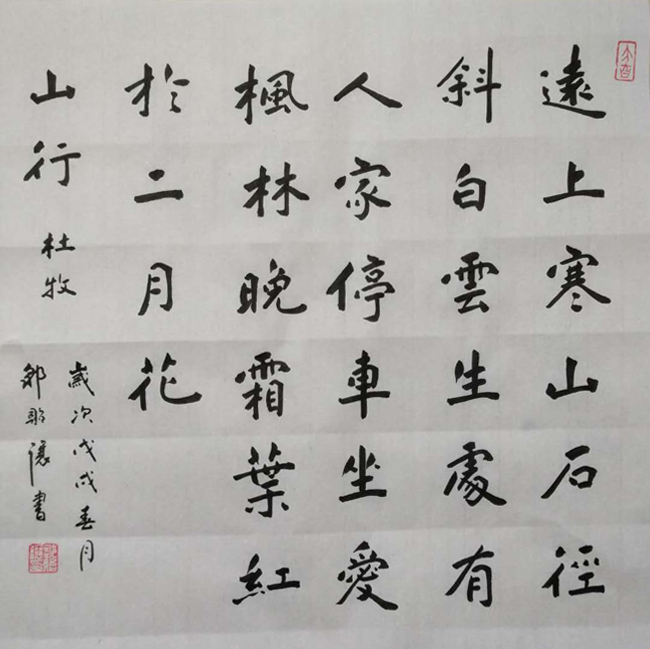 遠上寒山石徑
斜白雲生處有
人家停車坐愛
楓林晚霜葉紅
於二月花
山行 杜牧
歲次戊戌春月
鄒書